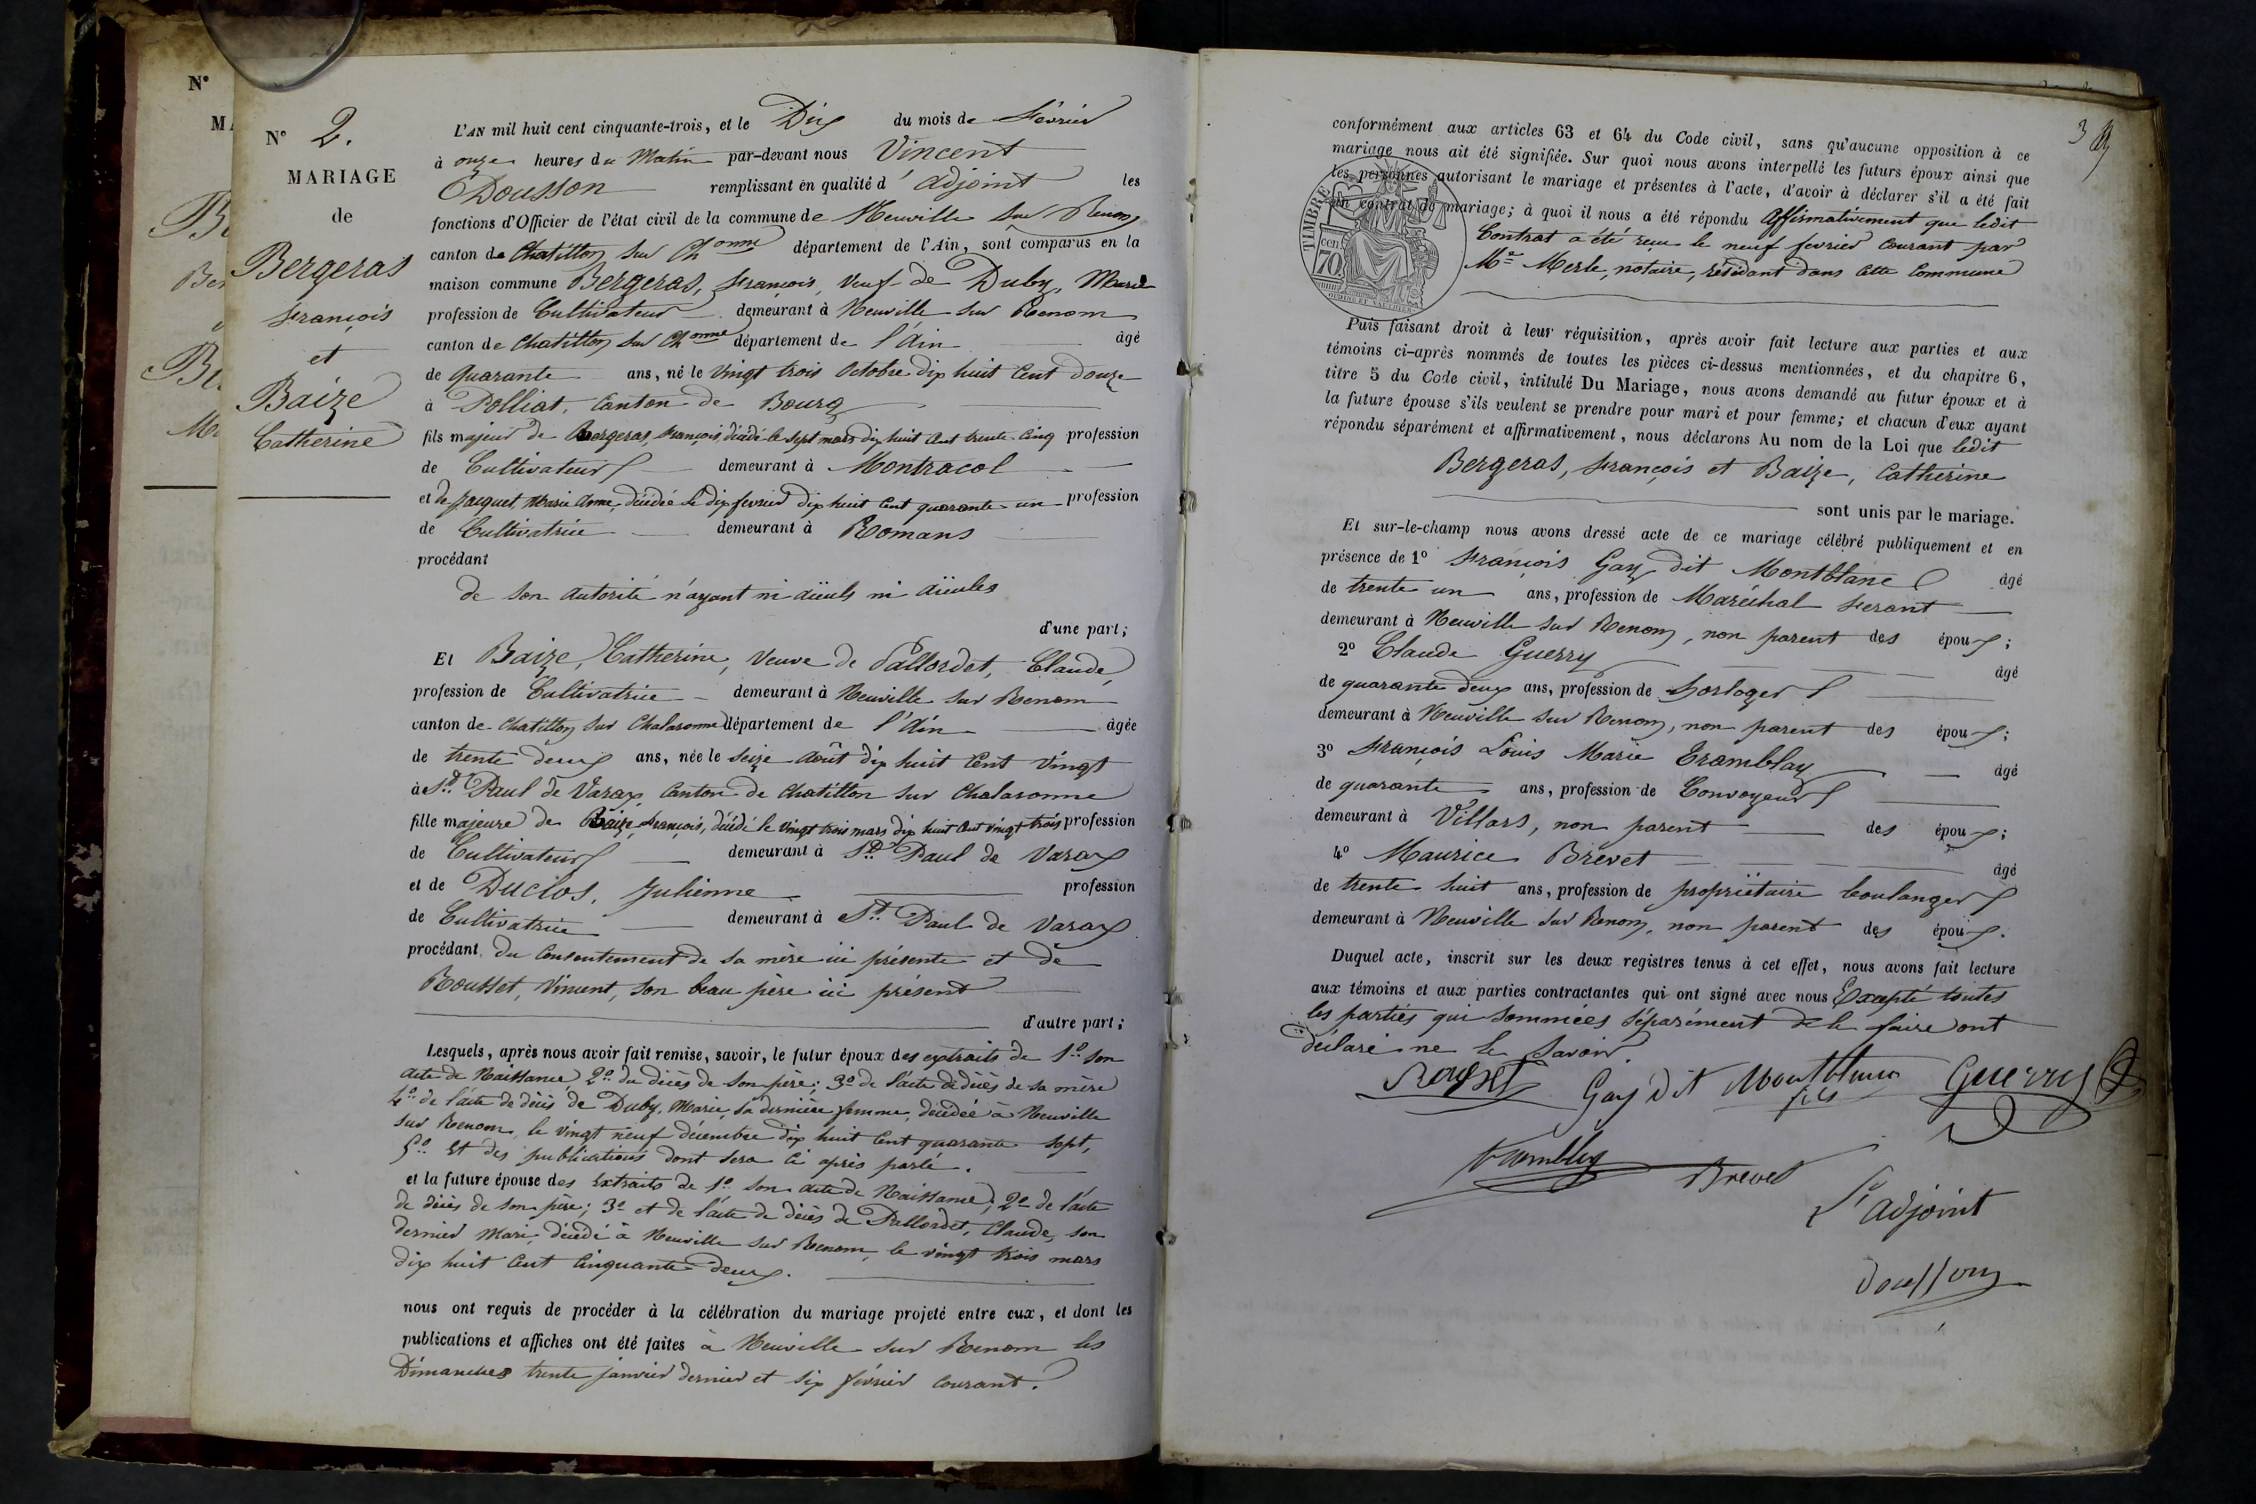 N°
MA
N° 2.
MARIAGE
de
Bergeras
François
et
Baize
Catherine
L'AN mil huit cent cinquante-trois, et le Dix du mois de Février
à onze heures du Matin par-devant nous Vincent
Dousson remplissant en qualité d'adjoint les
fonctions d'Officier de l'état civil de la commune de Neuville sur Renom
canton de Chatillon sur Chonne département de l'Ain, sont comparus en la
maison commune Bergeras, François, Veuf de Duby, Marie
profession de Cultivateur demeurant à Neuville sur Renom
canton de Chatillon sur Chonne département de l'Ain âgé
de quarante ans, né le vingt trois Octobre dix huit Cent douze
à Polliat, Canton de Bourg
fils majeur de Bergeras, François, décédé le sept mars dix huit Cent trente-cinq profession
de Cultivateur demeurant à Montracol
et de Jacquet, Marie Anne, décédée le dix fevrier dix huit Cent quarante un profession
de Cultivatrice demeurant à Romans
procédant
de son autorité n'ayant ni aïeuls ni aïeules
d'une part;
Et Baize, Catherine, Veuve de Pallordet, Claude,
profession de Cultivatrice demeurant à Neuville sur Renom
canton de Chatillon sur Chalaronne département de l'Ain âgée
de trente deux ans, née le seize août dix huit Cent vingt
à St Paul de Varax, Canton de Chatillon sur Chalaronne
fille majeure de Baize François, décédé le vingt trois mars dix huit Cent vingt trois profession
de Cultivateur demeurant à St Paul de Varax
et de Duclos, Julienne profession
de Cultivatrice demeurant à St Paul de Varax
procédant du Consentement de sa mère ici présente et de
Rousset, Vincent, son beau père ici présent
d'autre part;
Lesquels, après nous avoir fait remise, savoir, le futur époux des extraits de 1° son
acte de Naissance, 2° du décès de son père; 3° de l'acte de décès de sa mère
4° de l'acte de décès de Duby, Marie, sa dernière femme, décédée à Neuville
sur Renom, le vingt neuf décembre dix huit Cent quarante sept,
5° Et des publications dont sera ci après parlé.
et la future épouse des Extraits de 1° son acte de Naissance; 2° de l'acte
de décès de son père; 3° et de l'acte de décès de Pallordet, Claude, son
dernier Mari, décédé à Neuville sur Renom, le vingt trois mars
dix huit Cent Cinquante deux.
nous ont requis de procéder à la célébration du mariage projeté entre eux, et dont les
publications et affiches ont été faites à Neuville sur Renom les
Dimanches trente janvier dernier et six février courant.
3
conformément aux articles 63 et 64 du Code civil, sans qu'aucune opposition à ce
mariage nous ait été signifiée. Sur quoi nous avons interpellé les futurs époux ainsi que
les personnes autorisant le mariage et présentes à l'acte, d'avoir à déclarer s'il a été fait
un contrat de mariage; à quoi il nous a été répondu Affirmativement que ledit
Contrat a été reçu le neuf fevrier Courant par
Me Merle, notaire, résidant dans cette Commune
TIMBRE
70 cen.
Puis faisant droit à leur réquisition, après avoir fait lecture aux parties et aux
témoins ci-après nommés de toutes les pièces ci-dessus mentionnées, et du chapitre 6,
titre 5 du Code civil, intitulé Du Mariage, nous avons demandé au futur époux et à
la future épouse s'ils veulent se prendre pour mari et pour femme; et chacun d'eux ayant
répondu séparément et affirmativement, nous déclarons Au nom de la Loi que ledit
Bergeras, François et Baize, Catherine
sont unis par le mariage.
Et sur-le-champ nous avons dressé acte de ce mariage célébré publiquement et en
présence de 1° François Gay dit Montblanc âgé
de trente un ans, profession de Maréchal ferant
demeurant à Neuville sur Renom, non parent des époux;
2° Claude Guerry âgé
de quarante deux ans, profession de horloger
demeurant à Neuville sur Renom, non parent des époux;
3° François Louis Marie Tramblay âgé
de quarante ans, profession de Convoyeur
demeurant à Villars, non parent des époux;
4° Maurice Brevet âgé
de trente huit ans, profession de propriétaire boulanger
demeurant à Neuville sur Renom, non parent des époux.
Duquel acte, inscrit sur les deux registres tenus à cet effet, nous avons fait lecture
aux témoins et aux parties contractantes qui ont signé avec nous Excepté toutes
les parties qui sommées séparément de le faire ont
déclaré ne le savoir.
Rousset Gay dit Montblanc fils Guerry
Tramblay Brevet
L'adjoint
Dousson